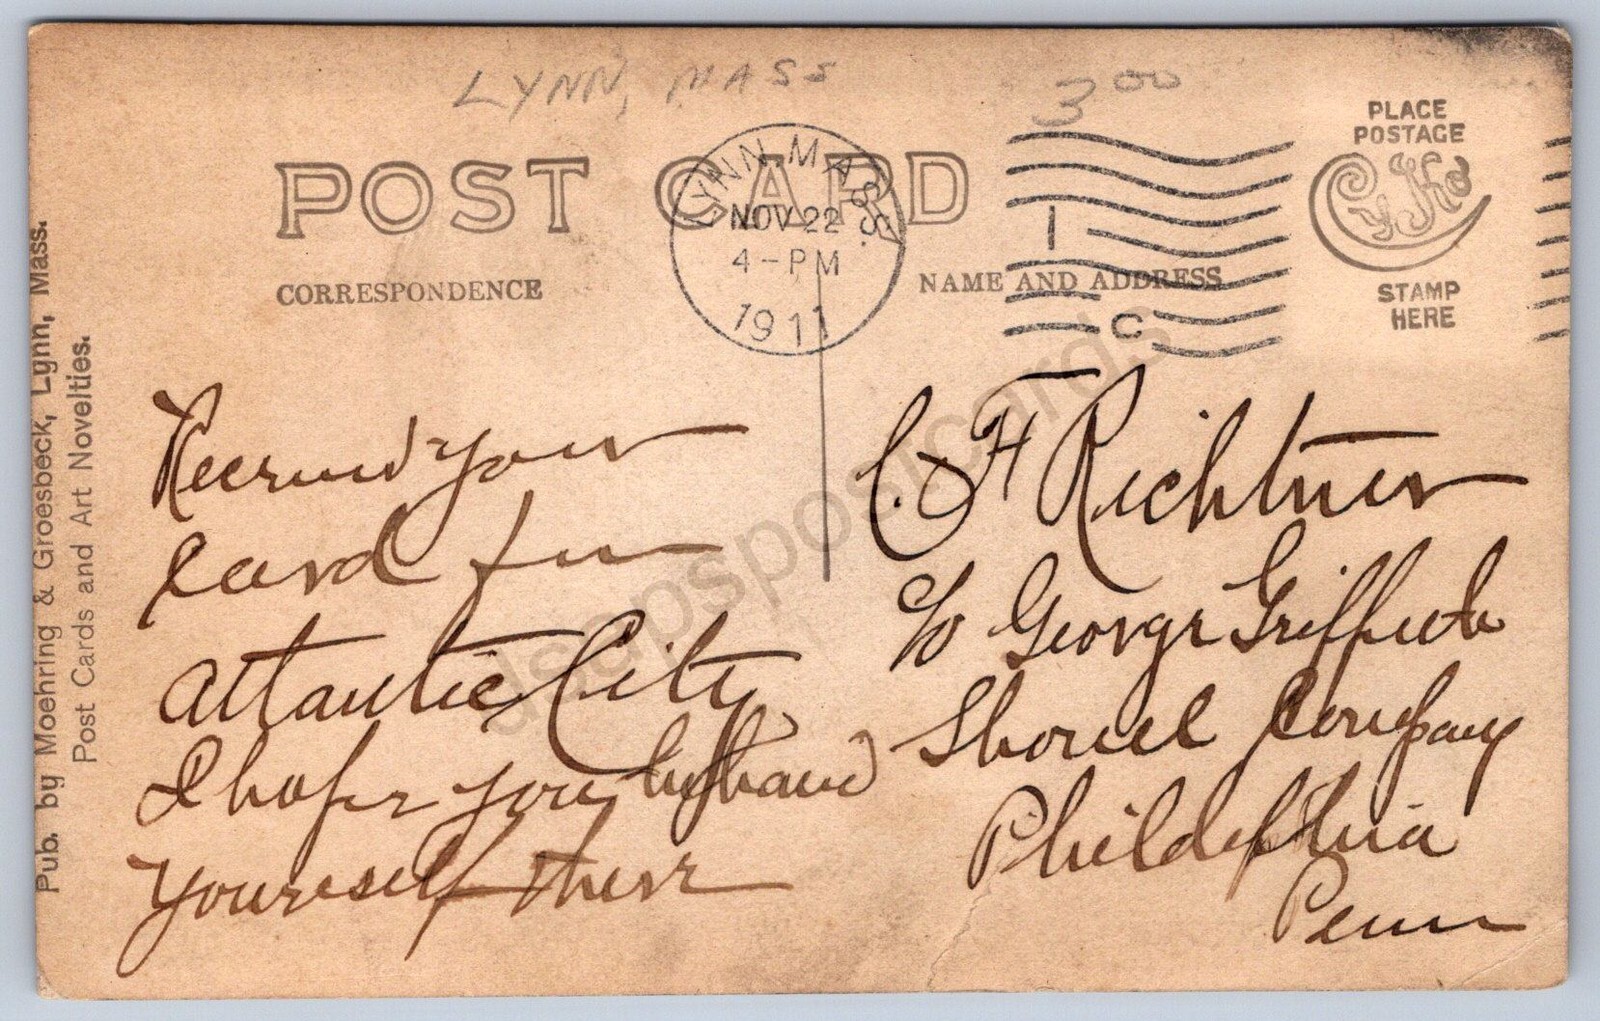 LYNN, MASS
3 00
PLACE
POSTAGE
CYKO
STAMP
HERE
POST CARD
LYNN MASS.
NOV 22
4-PM
1911
1
C
CORRESPONDENCE
NAME AND ADDRESS
Pub. by Moehring & Groesbeck, Lynn, Mass.
Post Cards and Art Novelties.
Received your
card from
Atlantic City
I hope you behaved
yourself there
C. F. Richtner
c/o George Griffith
Shovel Company
Phildelphia
Penn
dsapspostcards